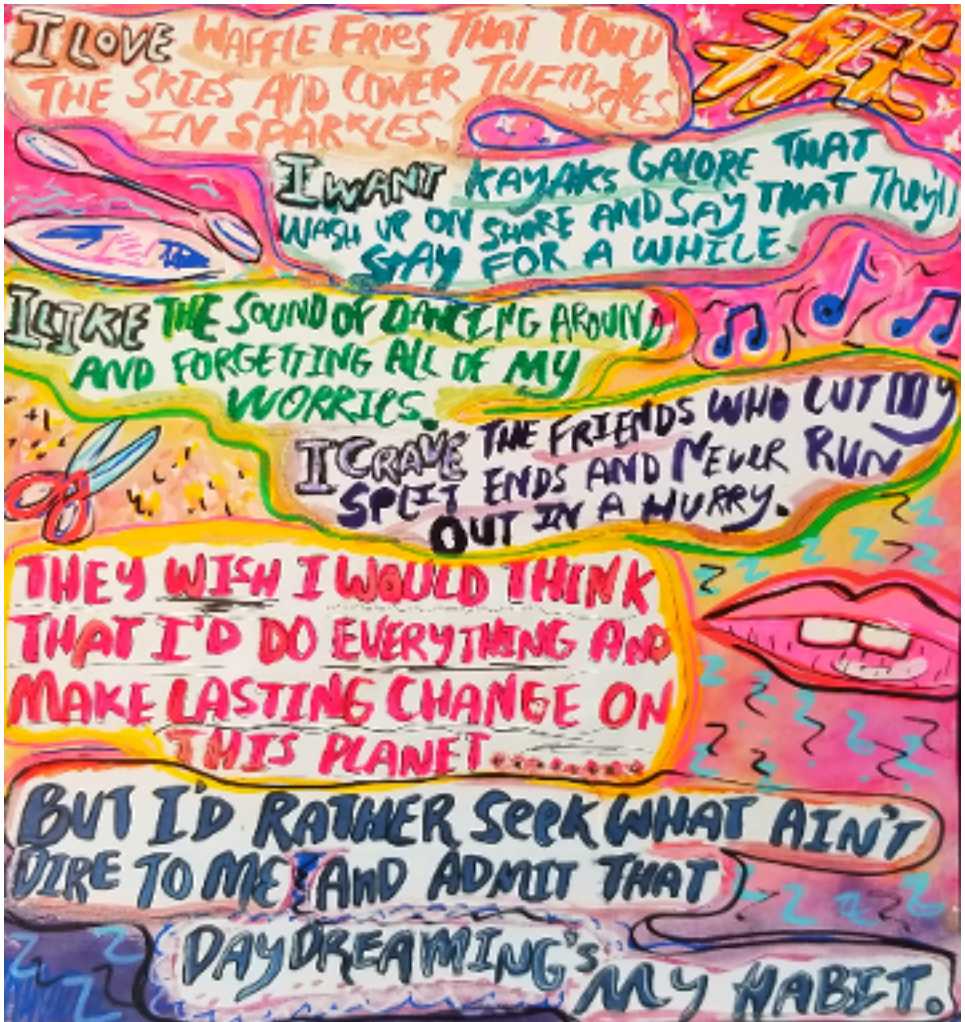 I LOVE WAFFLE FRIES THAT TOUCH
THE SKIES AND COVER THEMSELVES
IN SPARKLES.
I WANT KAYAKS GALORE THAT
WASH UP ON SHORE AND SAY THAT THEY'll
STAY FOR A WHILE.
I LIKE THE SOUND OF DANCING AROUND
AND FORGETTING ALL OF MY
WORRIES.
I CRAVE THE FRIENDS WHO CUT MY
SPLIT ENDS AND NEVER RUN
OUT IN A HURRY.
THEY WISH I WOULD THINK
THAT I'D DO EVERYTHING AND
MAKE LASTING CHANGE ON
THIS PLANET..........
BUT I'D RATHER SEEK WHAT AIN'T
DIRE TO ME AND ADMIT THAT
DAYDREAMING'S
MY HABIT.